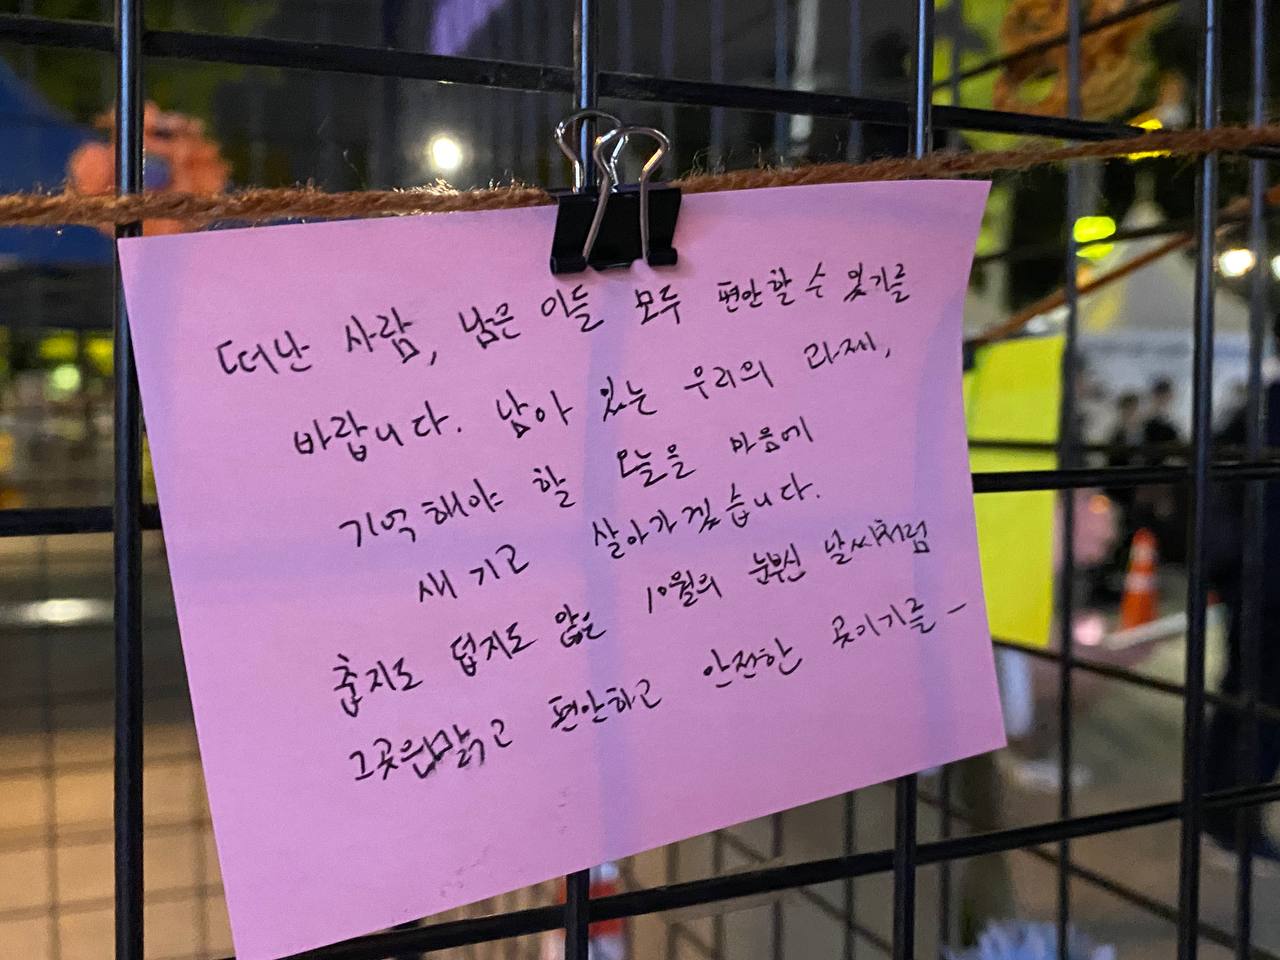 떠난 사람, 남은 이들 모두 편안할 수 있기를
바랍니다. 남아 있는 우리의 과제,
기억해야 할 오늘을 마음에
새기고 살아가겠습니다.
춥지도 덥지도 않은 10월의 눈부신 날씨처럼
그곳은 맑고 편안하고 안전한 곳이기를 -